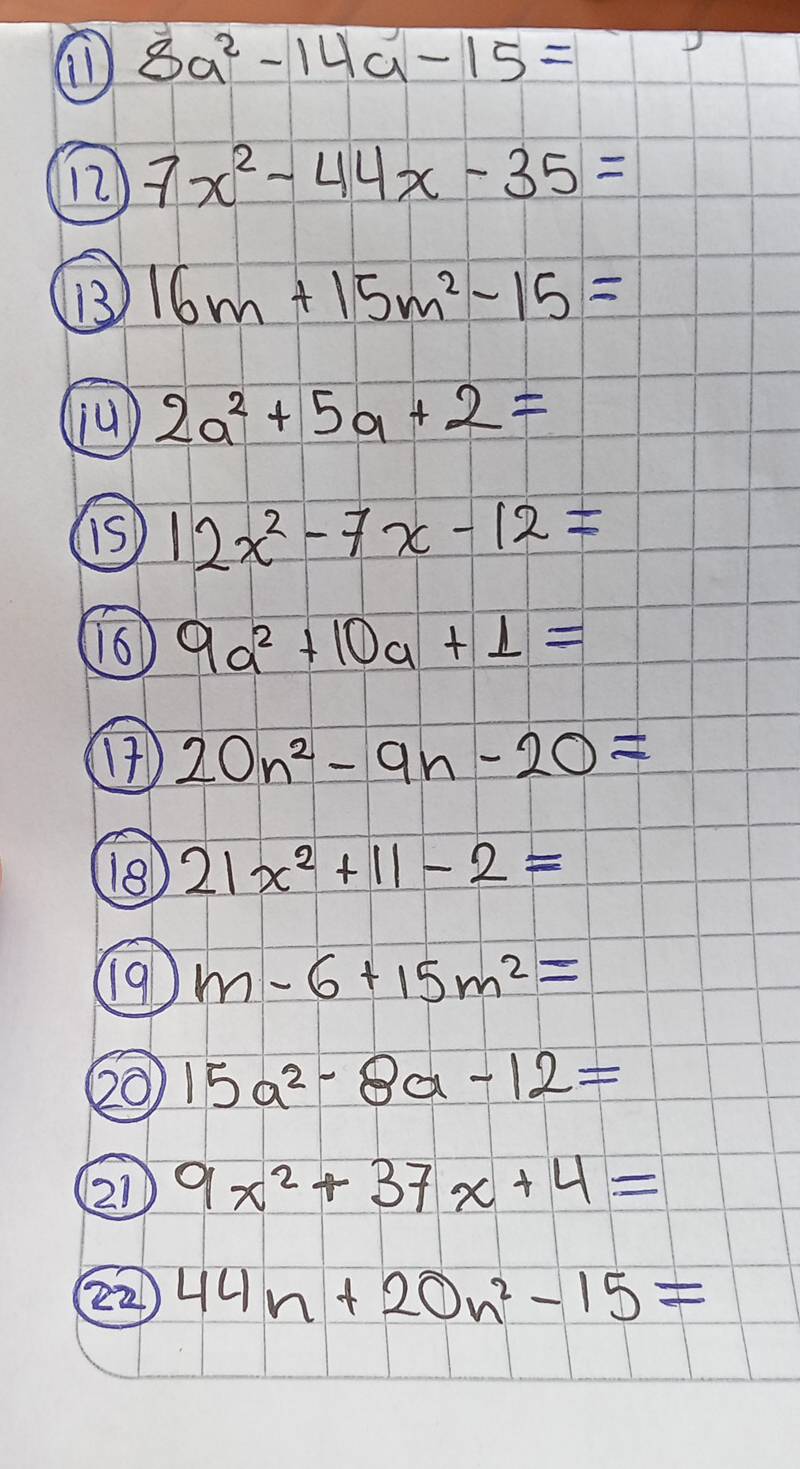 11 8a² - 14a - 15 =
12 7x² - 44x - 35 =
13 16m + 15m² - 15 =
14 2a² + 5a + 2 =
15 12x² - 7x - 12 =
16 9a² + 10a + 1 =
17 20n² - 9n - 20 =
18 21x² + 11 - 2 =
19 m - 6 + 15m² =
20 15a² - 8a - 12 =
21 9x² + 37x + 4 =
22 44n + 20n² - 15 =